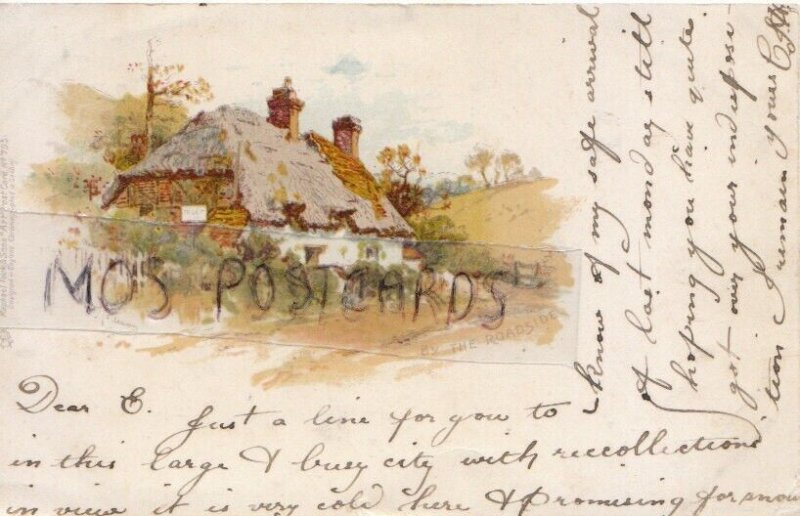 Dear E. Just a line for you to
in this large & busy city with reccollections
in view it is very cold here & promising for snow
know of my safe arrival
of last monday still
hoping you have quite
got over your indisposi-
tion I remain yours
MOS POSTCARDS
BY THE ROADSIDE